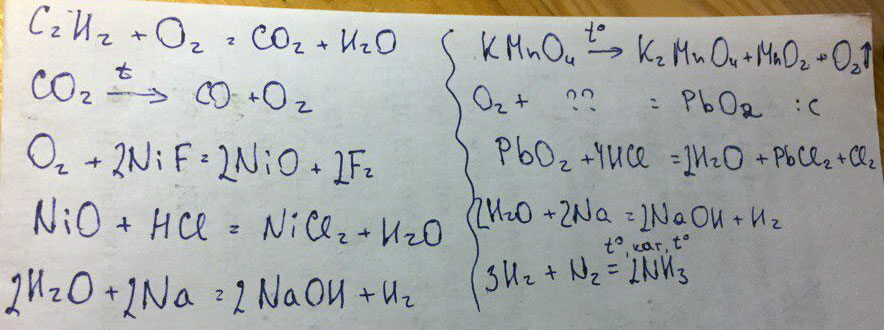 C₂H₂ + O₂ = CO₂ + H₂O
CO₂ —t→ CO + O₂
O₂ + 2NiF = 2NiO + 2F₂
NiO + HCl = NiCl₂ + H₂O
2H₂O + 2Na = 2NaOH + H₂
KMnO₄ —t°→ K₂MnO₄ + MnO₂ + O₂↑
O₂ + ?? = PbO₂ :C
PbO₂ + 4HCl = 2H₂O + PbCl₂ + Cl₂
2H₂O + 2Na = 2NaOH + H₂
t°, кат, t°
3H₂ + N₂ = 2NH₃